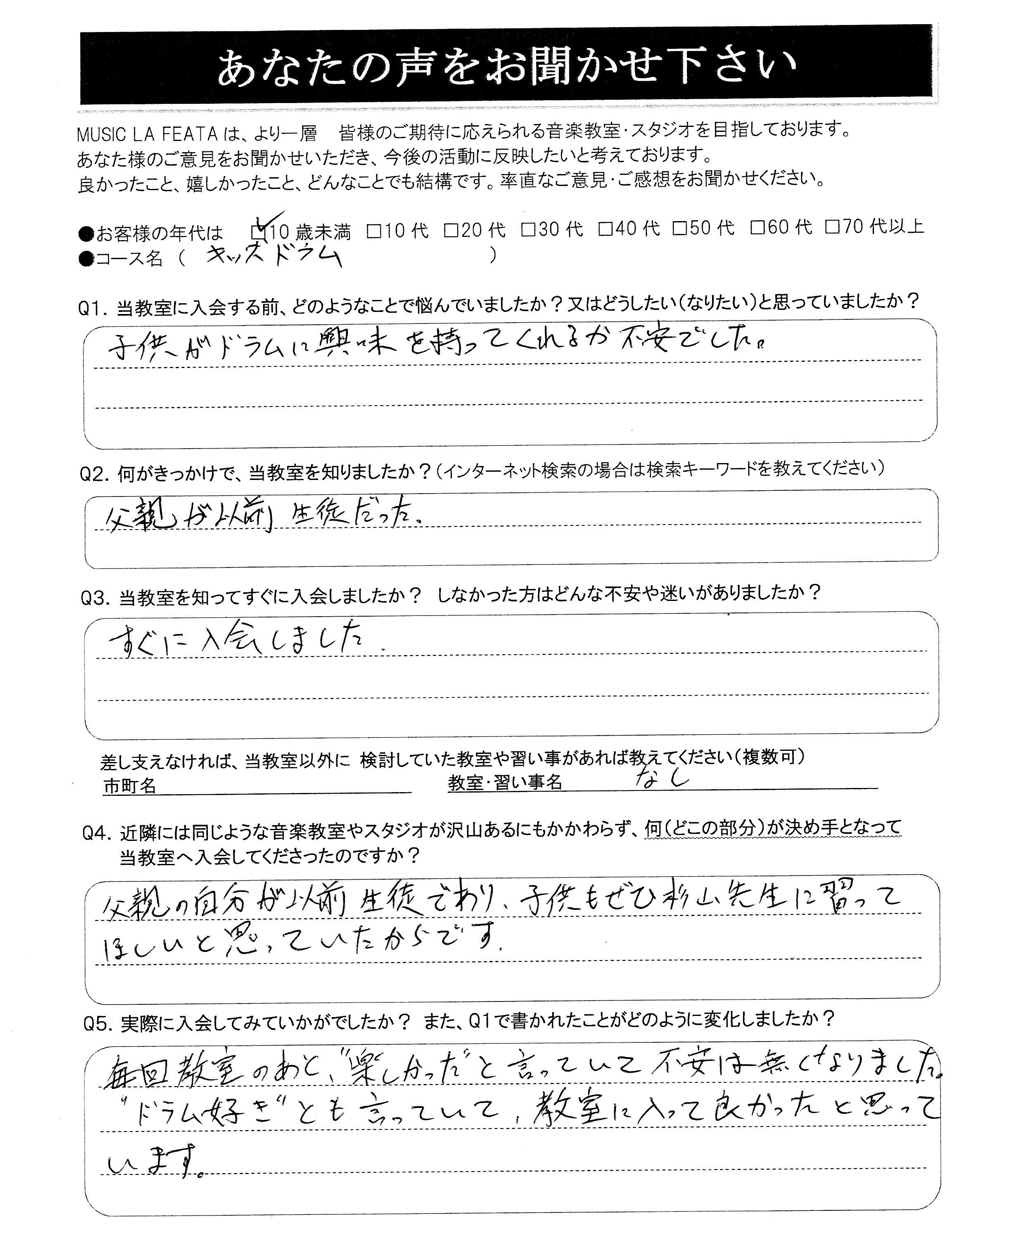 あなたの声をお聞かせ下さい
MUSIC LA FEATA は、より一層 皆様のご期待に応えられる音楽教室・スタジオを目指しております。
あなた様のご意見をお聞かせいただき、今後の活動に反映したいと考えております。
良かったこと、嬉しかったこと、どんなことでも結構です。率直なご意見・ご感想をお聞かせください。
●お客様の年代は ☑10 歳未満 □10 代 □20 代 □30 代 □40 代 □50 代 □60 代 □70 代以上
●コース名 ( キッズドラム )
Q1. 当教室に入会する前、どのようなことで悩んでいましたか?又はどうしたい(なりたい)と思っていましたか?
子供がドラムに興味を持ってくれるか不安でした。
Q2. 何がきっかけで、当教室を知りましたか?(インターネット検索の場合は検索キーワードを教えてください)
父親が以前生徒だった.
Q3. 当教室を知ってすぐに入会しましたか? しなかった方はどんな不安や迷いがありましたか?
すぐに入会しました.
差し支えなければ、当教室以外に 検討していた教室や習い事があれば教えてください(複数可)
市町名 教室・習い事名 なし
Q4. 近隣には同じような音楽教室やスタジオが沢山あるにもかかわらず、何(どこの部分)が決め手となって
当教室へ入会してくださったのですか?
父親の自分が以前生徒であり、子供もぜひ杉山先生に習って
ほしいと思っていたからです.
Q5. 実際に入会してみていかがでしたか? また、Q1で書かれたことがどのように変化しましたか?
毎回教室のあと、"楽しかっだ"と言っていて不安は無くなりました。
"ドラム好き"とも言っていて、教室に入って良かったと思って
います。